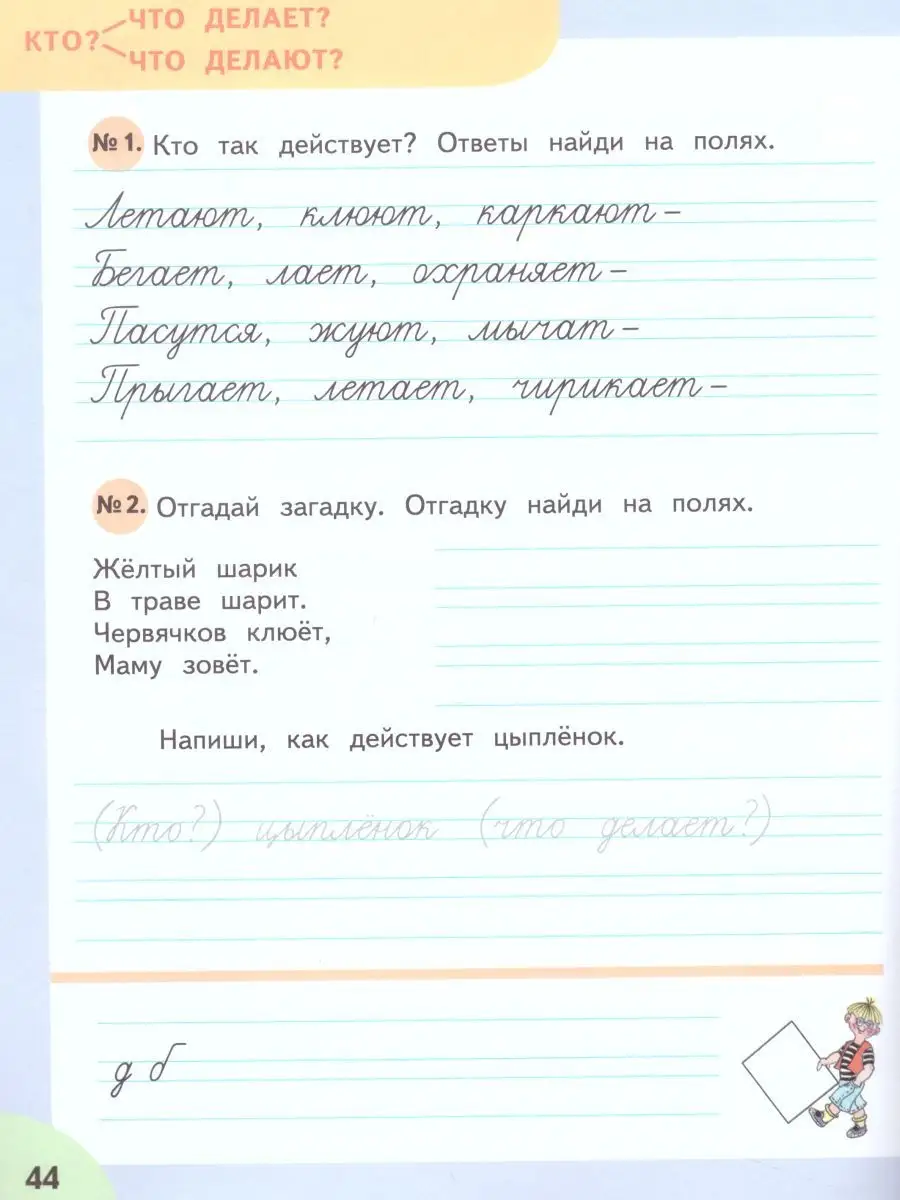 КТО? ЧТО ДЕЛАЕТ?
ЧТО ДЕЛАЮТ?
№ 1. Кто так действует? Ответы найди на полях.
Летают, клюют, каркают –
Бегает, лает, охраняет –
Пасутся, жуют, мычат –
Прыгает, летает, чирикает –
№ 2. Отгадай загадку. Отгадку найди на полях.
Жёлтый шарик
В траве шарит.
Червячков клюёт,
Маму зовёт.
Напиши, как действует цыплёнок.
(Кто?) цыплёнок (что делает?)
д б
44